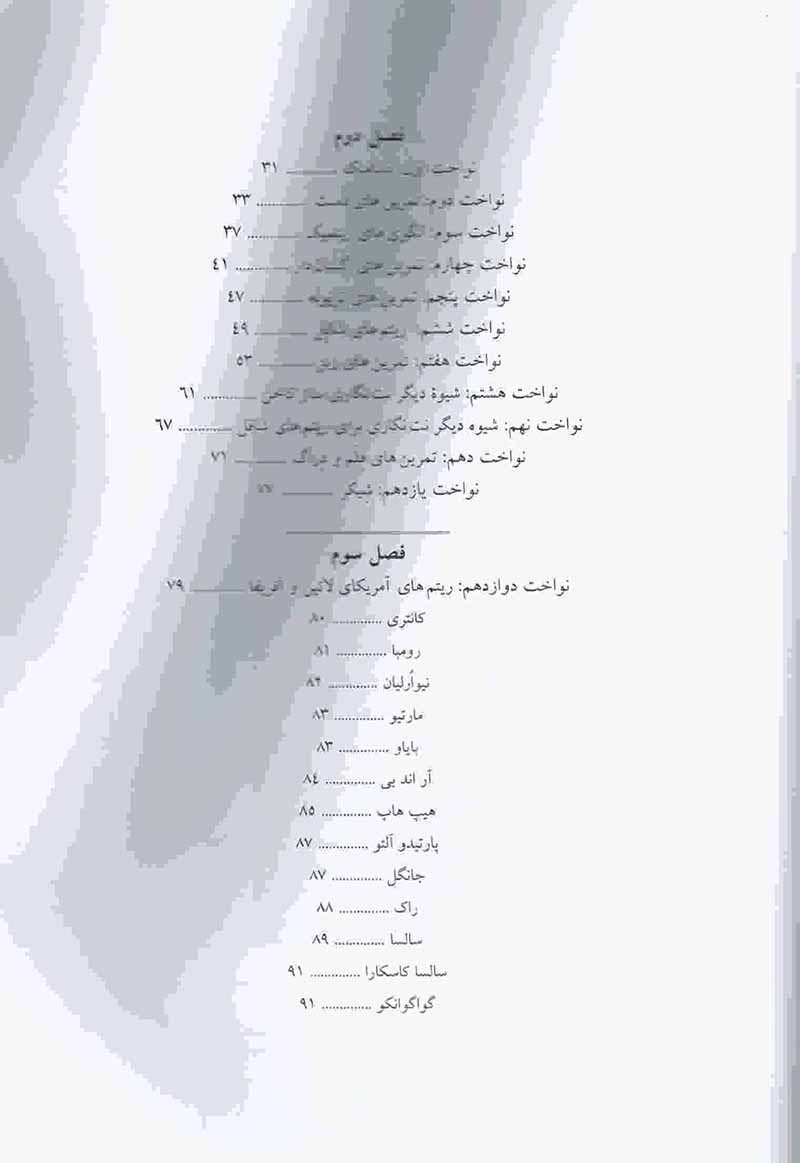 فصل دوم
نواخت اول: ............. ۳۱
نواخت دوم: تمرین های ............. ۳۳
نواخت سوم: الگوی های ریتمیک ............. ۳۷
نواخت چهارم: تمرین های ............. ۴۱
نواخت پنجم: تمرین های ............. ۴۷
نواخت ششم: ریتم های شافل ............. ۴۹
نواخت هفتم: تمرین های ............. ۵۳
نواخت هشتم: شیوۀ دیگر نت نگاری ............. ۶۱
نواخت نهم: شیوه دیگر نت نگاری برای ریتم های شافل ............. ۶۷
نواخت دهم: تمرین های فلم و دراگ ............. ۷۱
نواخت یازدهم: شیکر .............
فصل سوم
نواخت دوازدهم: ریتم های آمریکای لاتین و آفریقا ............. ۷۹
کانتری ............. ۸۰
رومبا ............. ۸۱
نیواُرلیان ............. ۸۲
مارتیو ............. ۸۳
بایاو ............. ۸۳
آر اند بی ............. ۸۴
هیپ هاپ ............. ۸۵
پارتیدو آلتو ............. ۸۷
جانگل ............. ۸۷
راک ............. ۸۸
سالسا ............. ۸۹
سالسا کاسکارا ............. ۹۱
گواگوانکو ............. ۹۱